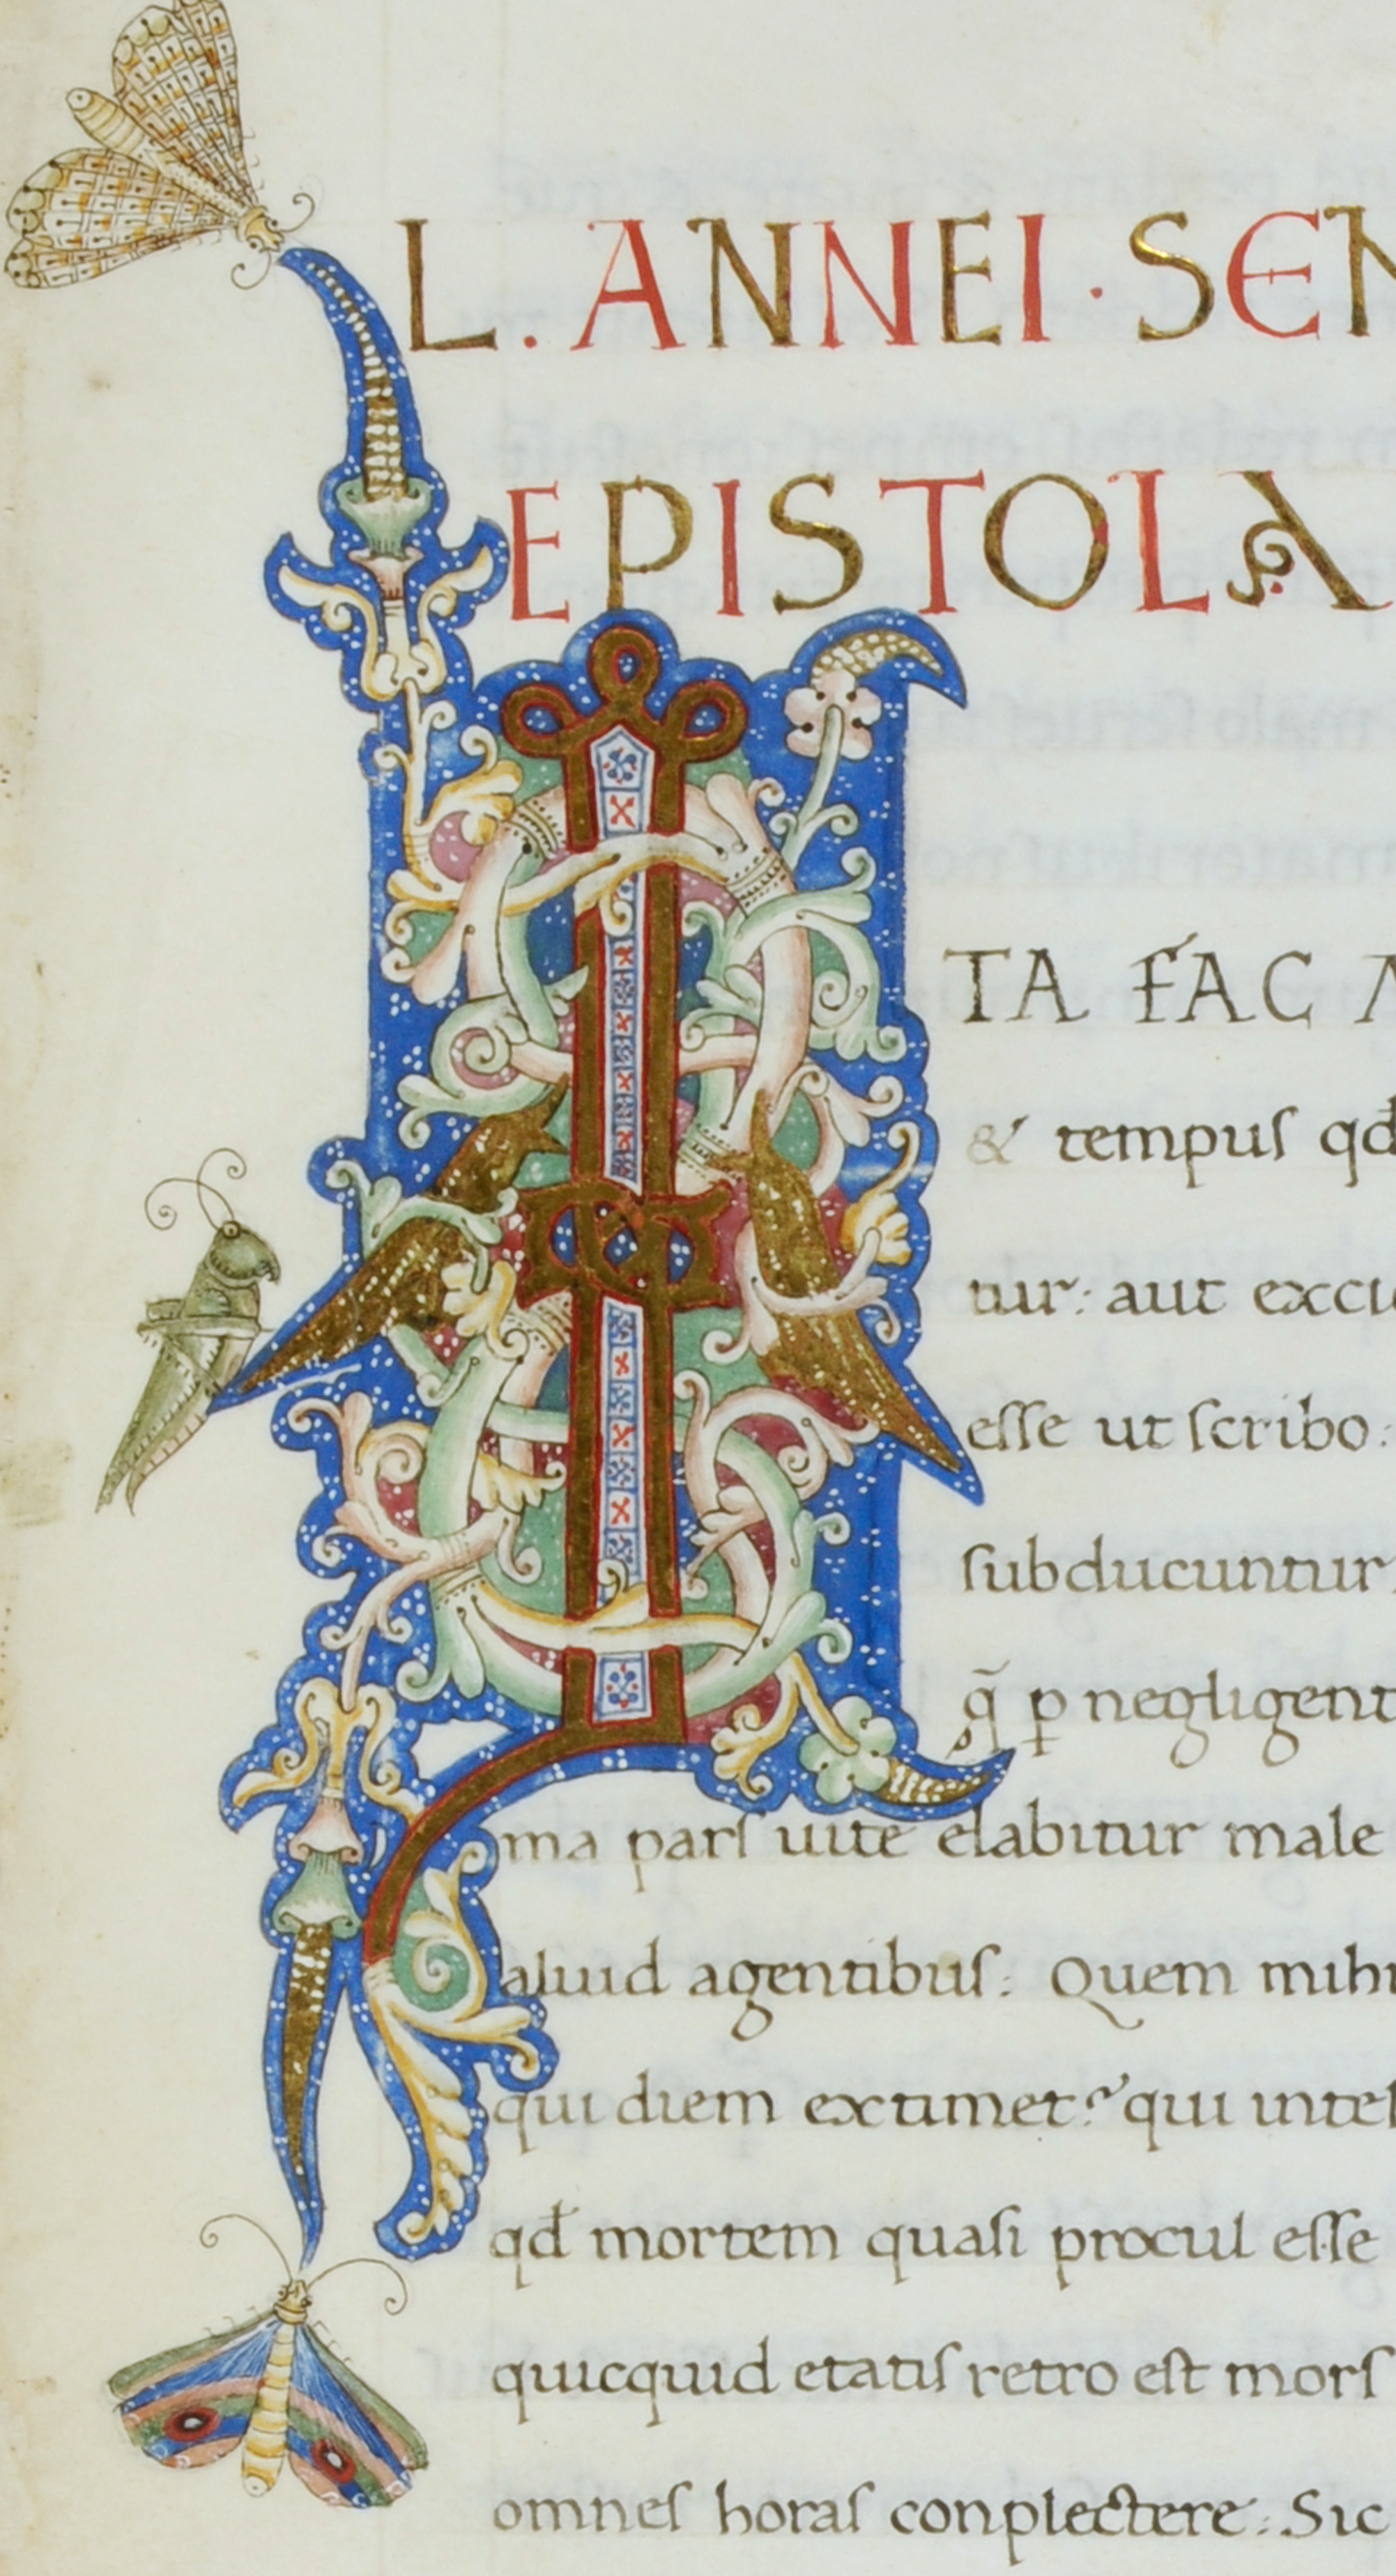 L. ANNEI · SEN
EPISTOLA
ITA FAC M
& tempus qd̄
tur: aut excu
esse ut scribo:
subducuntur
q̄ ꝑ negligent
ma pars uite elabitur male
aliud agentibus: Quem mihi
qui diem extimet? qui intel
qd̄ mortem quasi procul esse
quicquid etatis retro est mors
omnes horas conplectere: Sic